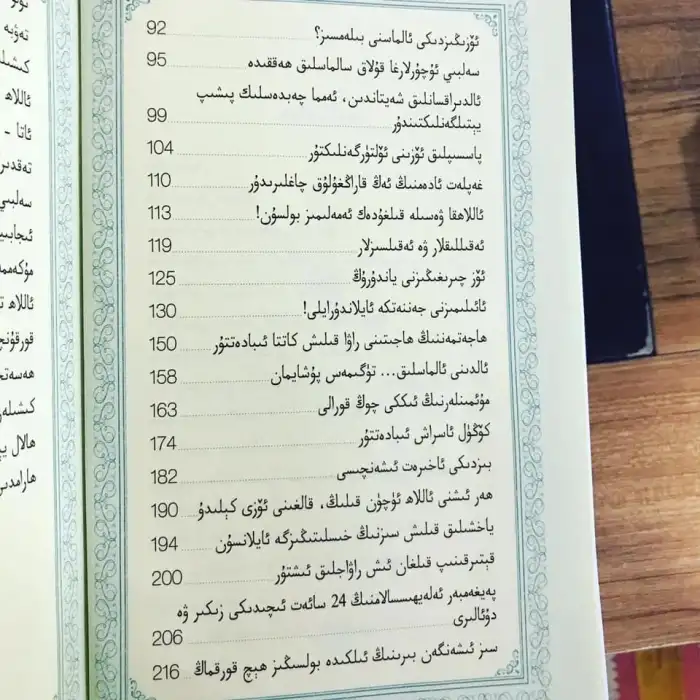 ئۆزىڭىزدىكى ئالماسنى بىلەمسىز؟ 92
سەلبىي ئۇچۇرلارغا قۇلاق سالماسلىق ھەققىدە 95
ئالدىراقسانلىق شەيتاندىن، ئەمما چەبدەسلىك پىشىپ
يېتىلگەنلىكتىندۇر 99
پاسسىپلىق ئۆزىنى ئۆلتۈرگەنلىكتۇر 104
غەپلەت ئادەمنىڭ ئەڭ قاراڭغۇلۇق چاغلىرىدۇر 110
ئاللاھقا ۋەسىلە قىلغۇدەك ئەمەلىمىز بولسۇن! 113
ئەقىللىقلار ۋە ئەقىلسىزلار 119
ئۆز چىرىغىڭىزنى ياندۇرۇڭ 125
ئائىلىمىزنى جەننەتكە ئايلاندۇرايلى! 130
ھاجەتمەننىڭ ھاجىتىنى راۋا قىلىش كاتتا ئىبادەتتۇر 150
ئالدىنى ئالماسلىق... تۈگىمەس پۇشايمان 158
مۇئمىنلەرنىڭ ئىككى چوڭ قورالى 163
كۆڭۈل ئاسراش ئىبادەتتۇر 174
بىزدىكى ئاخىرەت ئىشەنچىسى 182
ھەر ئىشنى ئاللاھ ئۈچۈن قىلىڭ، قالغىنى ئۆزى كېلىدۇ 190
ياخشىلىق قىلىش سىزنىڭ خىسلىتىڭىزگە ئايلانسۇن 194
قېتىرقىنىپ قىلغان ئىش راۋاجلىق ئىشتۇر 200
پەيغەمبەر ئەلەيھىسسالامنىڭ 24 سائەت ئىچىدىكى زىكىر ۋە
دۇئالىرى 206
سىز ئىشەنگەن بىرىنىڭ ئىلكىدە بولسىڭىز ھېچ قورقماڭ 216
تەۋبە
ئاللاھ
ئاتا -